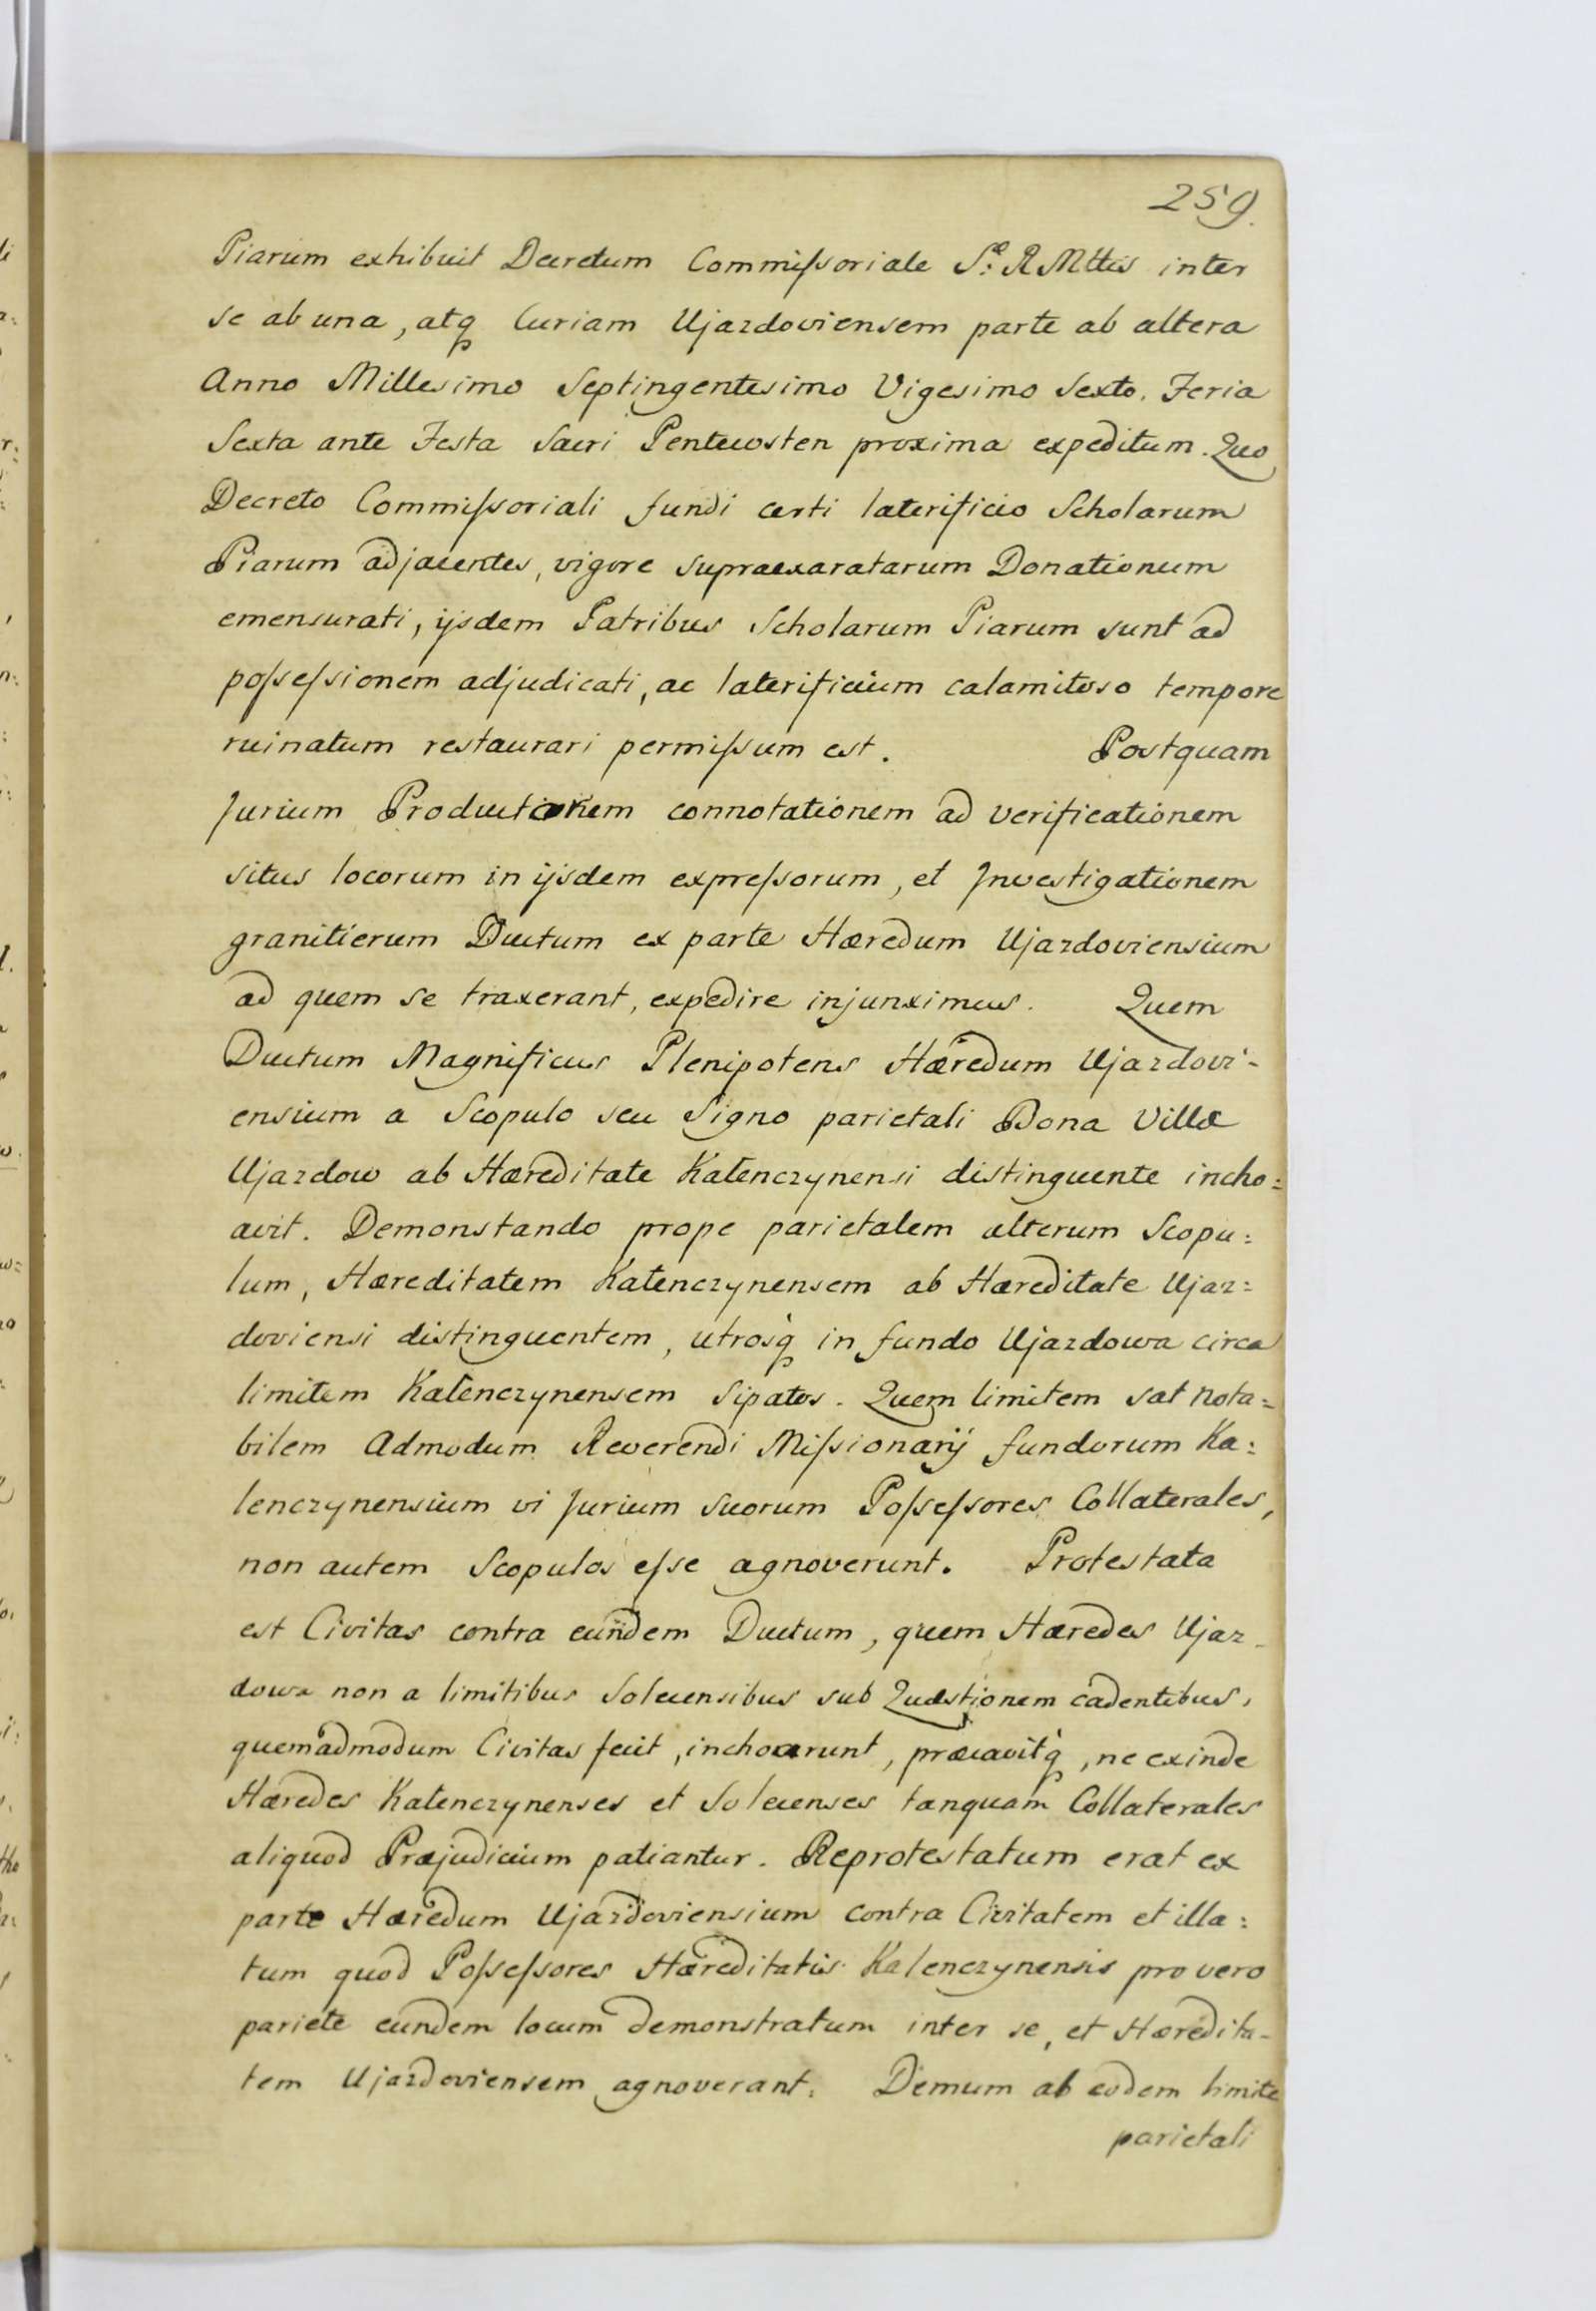 259.
Piarum exhibuit Decretum Commiſsoriale S: R Mttis inter
se ab una, atq Curiam Ujazdoviensem parte ab altera
Anno Millesimo Septingentesimo Vigesimo Sexto. Feria
Sexta ante Festa Sacri Pentecosten proxima expeditum. Quo
Decreto Commiſsoriali fundi certi laterificio Scholarum
Piarum adjacentes, vigore supraexaratarum Donationum
emensurati, ijsdem Patribus Scholarum Piarum sunt ad
poſseſsionem adjudicati, ac laterificium calamitoso tempore
ruinatum restaurari permiſsum est. Postquam
Jurium Productionem connotationem ad verificationem
situs locorum in ijsdem expreſsorum, et Investigationem
granitierum Ductum ex parte Hæredum Ujazdoviensium
ad quem se traxerant, expedire injunximus. Quem
Ductum Magnificus Plenipotens Hæredum Ujazdovi-
ensium a Scopulo seu Signo parietali Bona Villæ
Ujazdow ab Hæreditate Kałenczynensi distinguente incho=
avit. Demonstando prope parietalem alterum Scopu:
lum, Hæreditatem Kałenczynensem ab Hæreditate Ujaz=
doviensi distinguentem, utrosq in fundo Ujazdowa circa
limitem Kałenczynensem Sipatos. Quem limitem sat nota=
bilem Admodum Reverendi Miſsionarij fundorum Ka:
lenczynensium vi Jurium Suorum Poſseſsores Collaterales,
non autem Scopulos eſse agnoverunt. Protestata
est Civitas contra eundem Ductum, quem Hæredes Ujaz-
dowa non a limitibus Solecensibus sub Quæstionem cadentibus,
quemadmodum Civitas fecit, inchoarunt, præcavitq, ne exinde
Hæredes Kałenczynenses et Solecenses tanquam Collaterales
aliquod Præjudicium patiantur. Reprotestatum erat ex
parte Hæredum Ujazdoviensium contra Civitatem et illa:
tum quod Poſseſsores Hæreditatis Kalenczynensis pro vero
pariete eundem locum demonstratum inter se, et Hæredita-
tem Ujazdoviensem agnoverant. Demum ab eodem limite
parietali